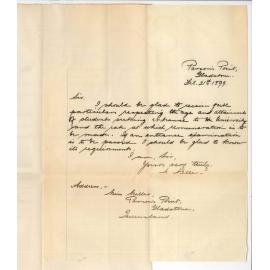 Parson's Point,
Gladstone.
Feb. 21st 1899.
Sir.
I should be glad to receive full
particulars respecting the age and attainments
of students seeking entrance to the University
and the rate at which remuneration is to
be made. If an entrance examination
is to be passed I should be glad to know
its requirements,
I am, Sir,
Yours very truly,
Miller.
Address,-
Miss Miller,
Parson's Point,
Gladstone,
Queensland.